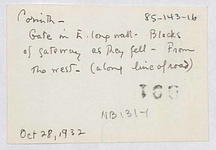 Corinth - 85-143-16
Gate in E. long wall - Blocks
of gateway as they fell - From
the west - (along line of road)
NB:131-1
Oct 28, 1932